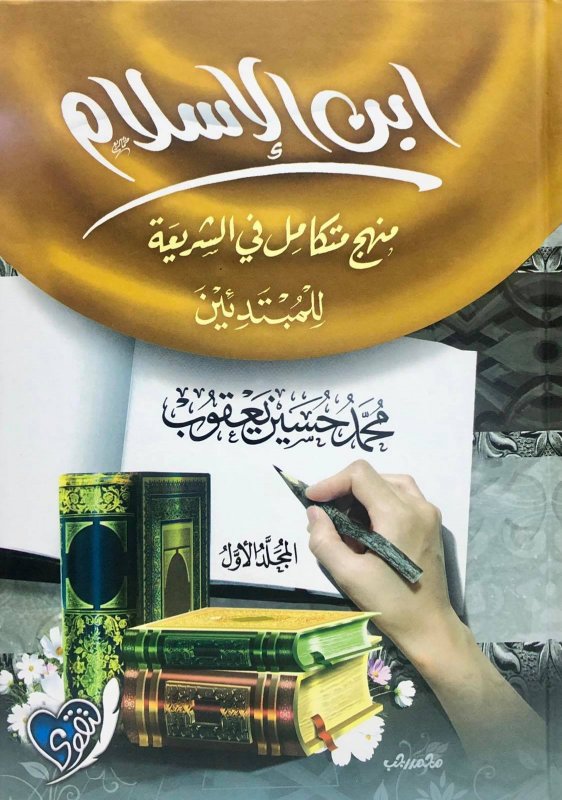 ابن الإسلام
منهج متكامل في الشريعة
للمُبْتَدِئِينَ
مُحَمَّدُ حُسَين يَعْقُوبُ
المُجَلَّدُ الأوَّلُ
تقوى
محمد رجب